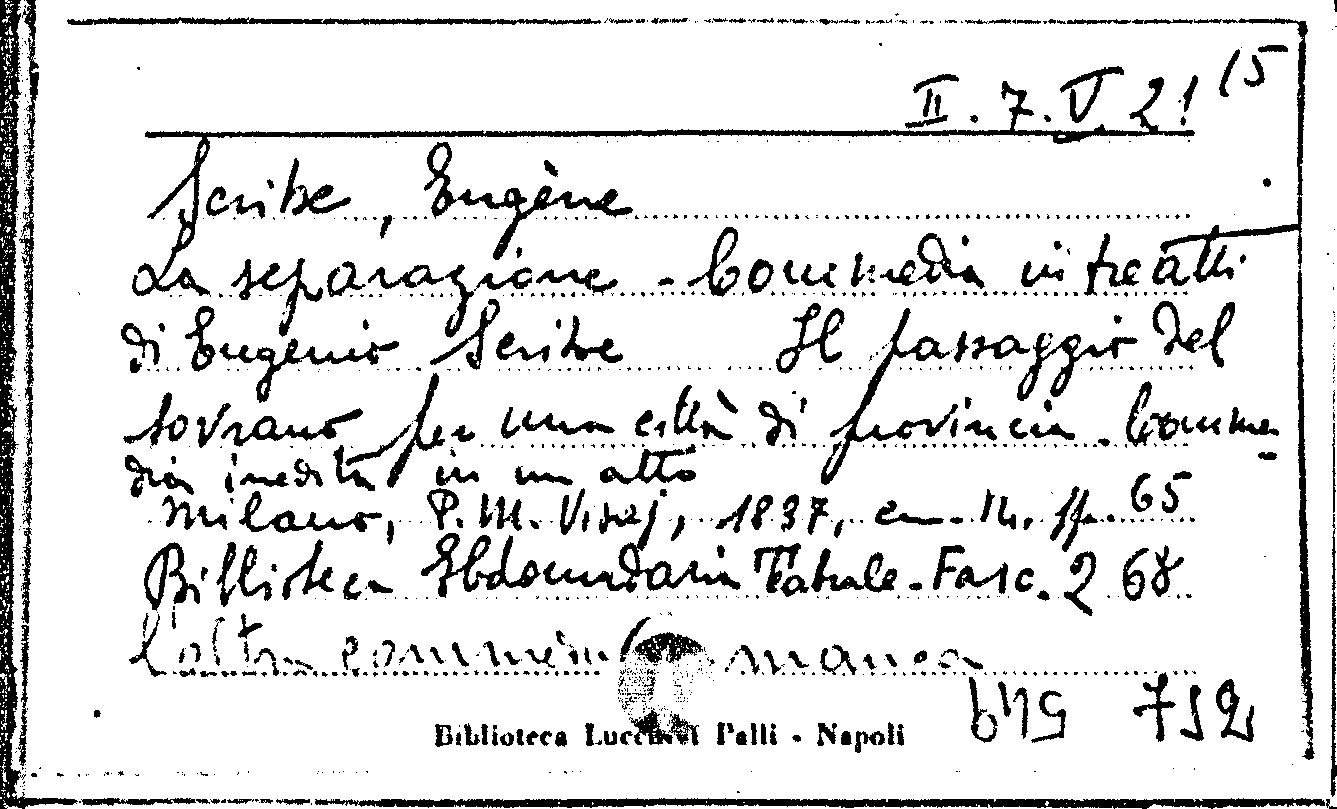 II. 7. V. 21 15
Scribe, Eugène
La separazione - Commedia in tre atti
di Eugenio Scribe Il passaggio del
sovrano per una città di provincia. Comme
dia inedita in un atto
Milano, P. M. Visaj, 1837, cm. 14, pp. 65
Biblioteca Ebdomadaria Teatrale - Fasc. 268
L'altra commedia manca
Biblioteca Lucchesi Palli - Napoli